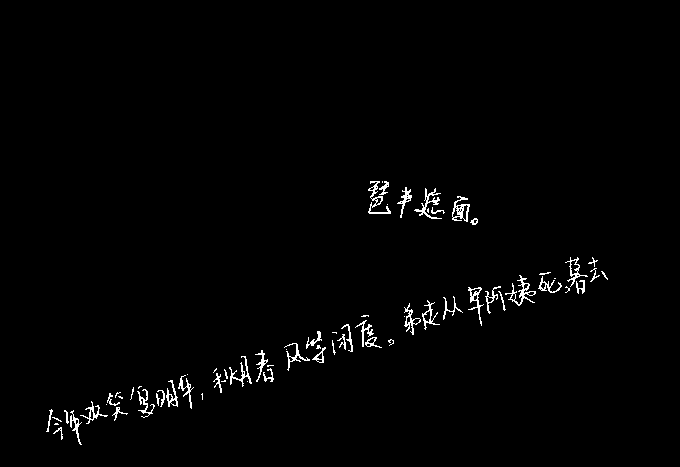 琶半遮面。
今年欢笑复明年，秋月春风等闲度。弟走从军阿姨死，暮去